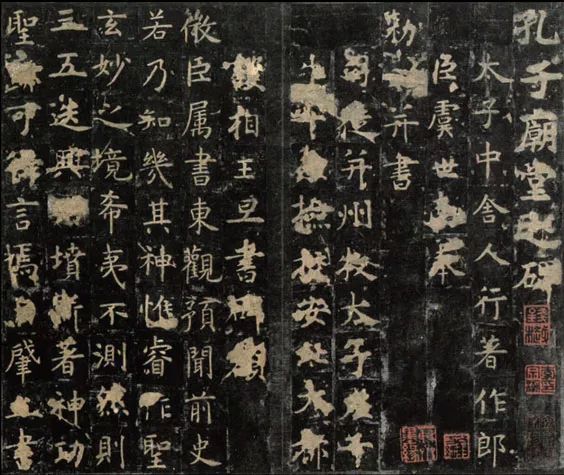 孔子廟堂之碑
太子中舍人行著作郎
臣虞世南奉
勑并書
司徒并州牧太子左千
牛率撿挍安北大都
護相王旦書碑額
微臣属書東觀預聞前史
若乃知幾其神惟睿作聖
玄妙之境希夷不測然則
三五迭興墳斯著神功
聖跡可得言焉自肇立書